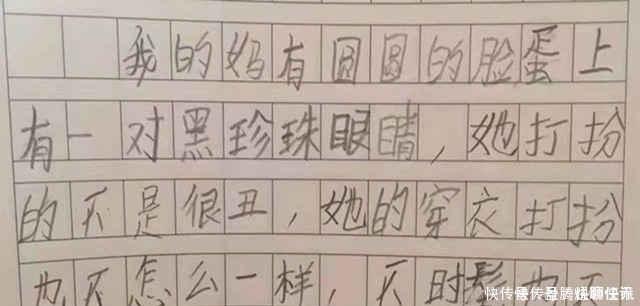 我的妈有圆圆的脸蛋上
有一对黑珍珠眼睛，她打扮
的不是很丑，她的穿衣打扮
也不怎么一样，不时髦也不
快传号